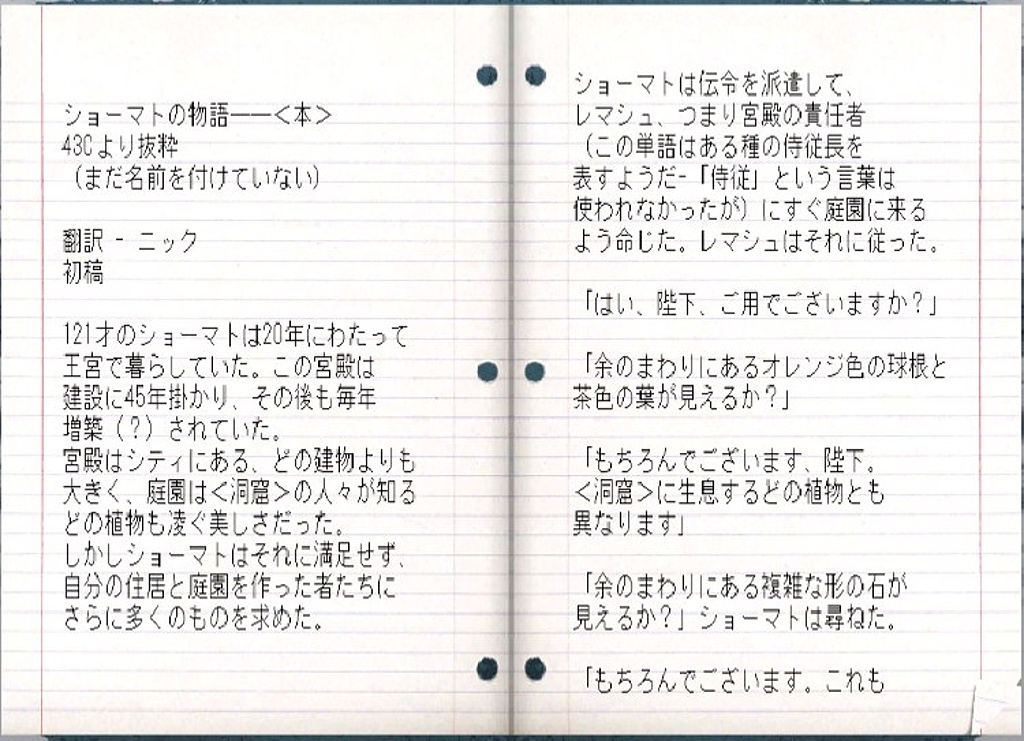 ショーマトの物語――＜本＞
43Cより抜粋
（まだ名前を付けていない）
翻訳 - ニック
初稿
121才のショーマトは20年にわたって
王宮で暮らしていた。この宮殿は
建設に45年掛かり、その後も毎年
増築（？）されていた。
宮殿はシティにある、どの建物よりも
大きく、庭園は＜洞窟＞の人々が知る
どの植物も凌ぐ美しさだった。
しかしショーマトはそれに満足せず、
自分の住居と庭園を作った者たちに
さらに多くのものを求めた。
ショーマトは伝令を派遣して、
レマシュ、つまり宮殿の責任者
（この単語はある種の侍従長を
表すようだ-「侍従」という言葉は
使われなかったが）にすぐ庭園に来る
よう命じた。レマシュはそれに従った。
「はい、陛下、ご用でございますか？」
「余のまわりにあるオレンジ色の球根と
茶色の葉が見えるか？」
「もちろんでございます、陛下。
＜洞窟＞に生息するどの植物とも
異なります」
「余のまわりにある複雑な形の石が
見えるか？」ショーマトは尋ねた。
「もちろんでございます。これも